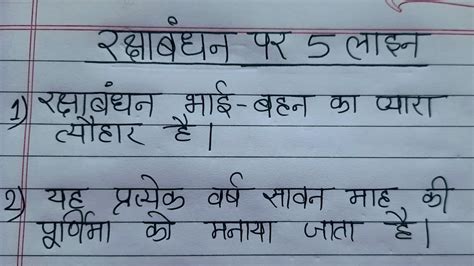 रक्षाबंधन पर 5 लाइन
1) रक्षाबंधन भाई-बहन का प्यारा
त्यौहार है।
2) यह प्रत्येक वर्ष सावन माह की
पूर्णिमा को मनाया जाता है।